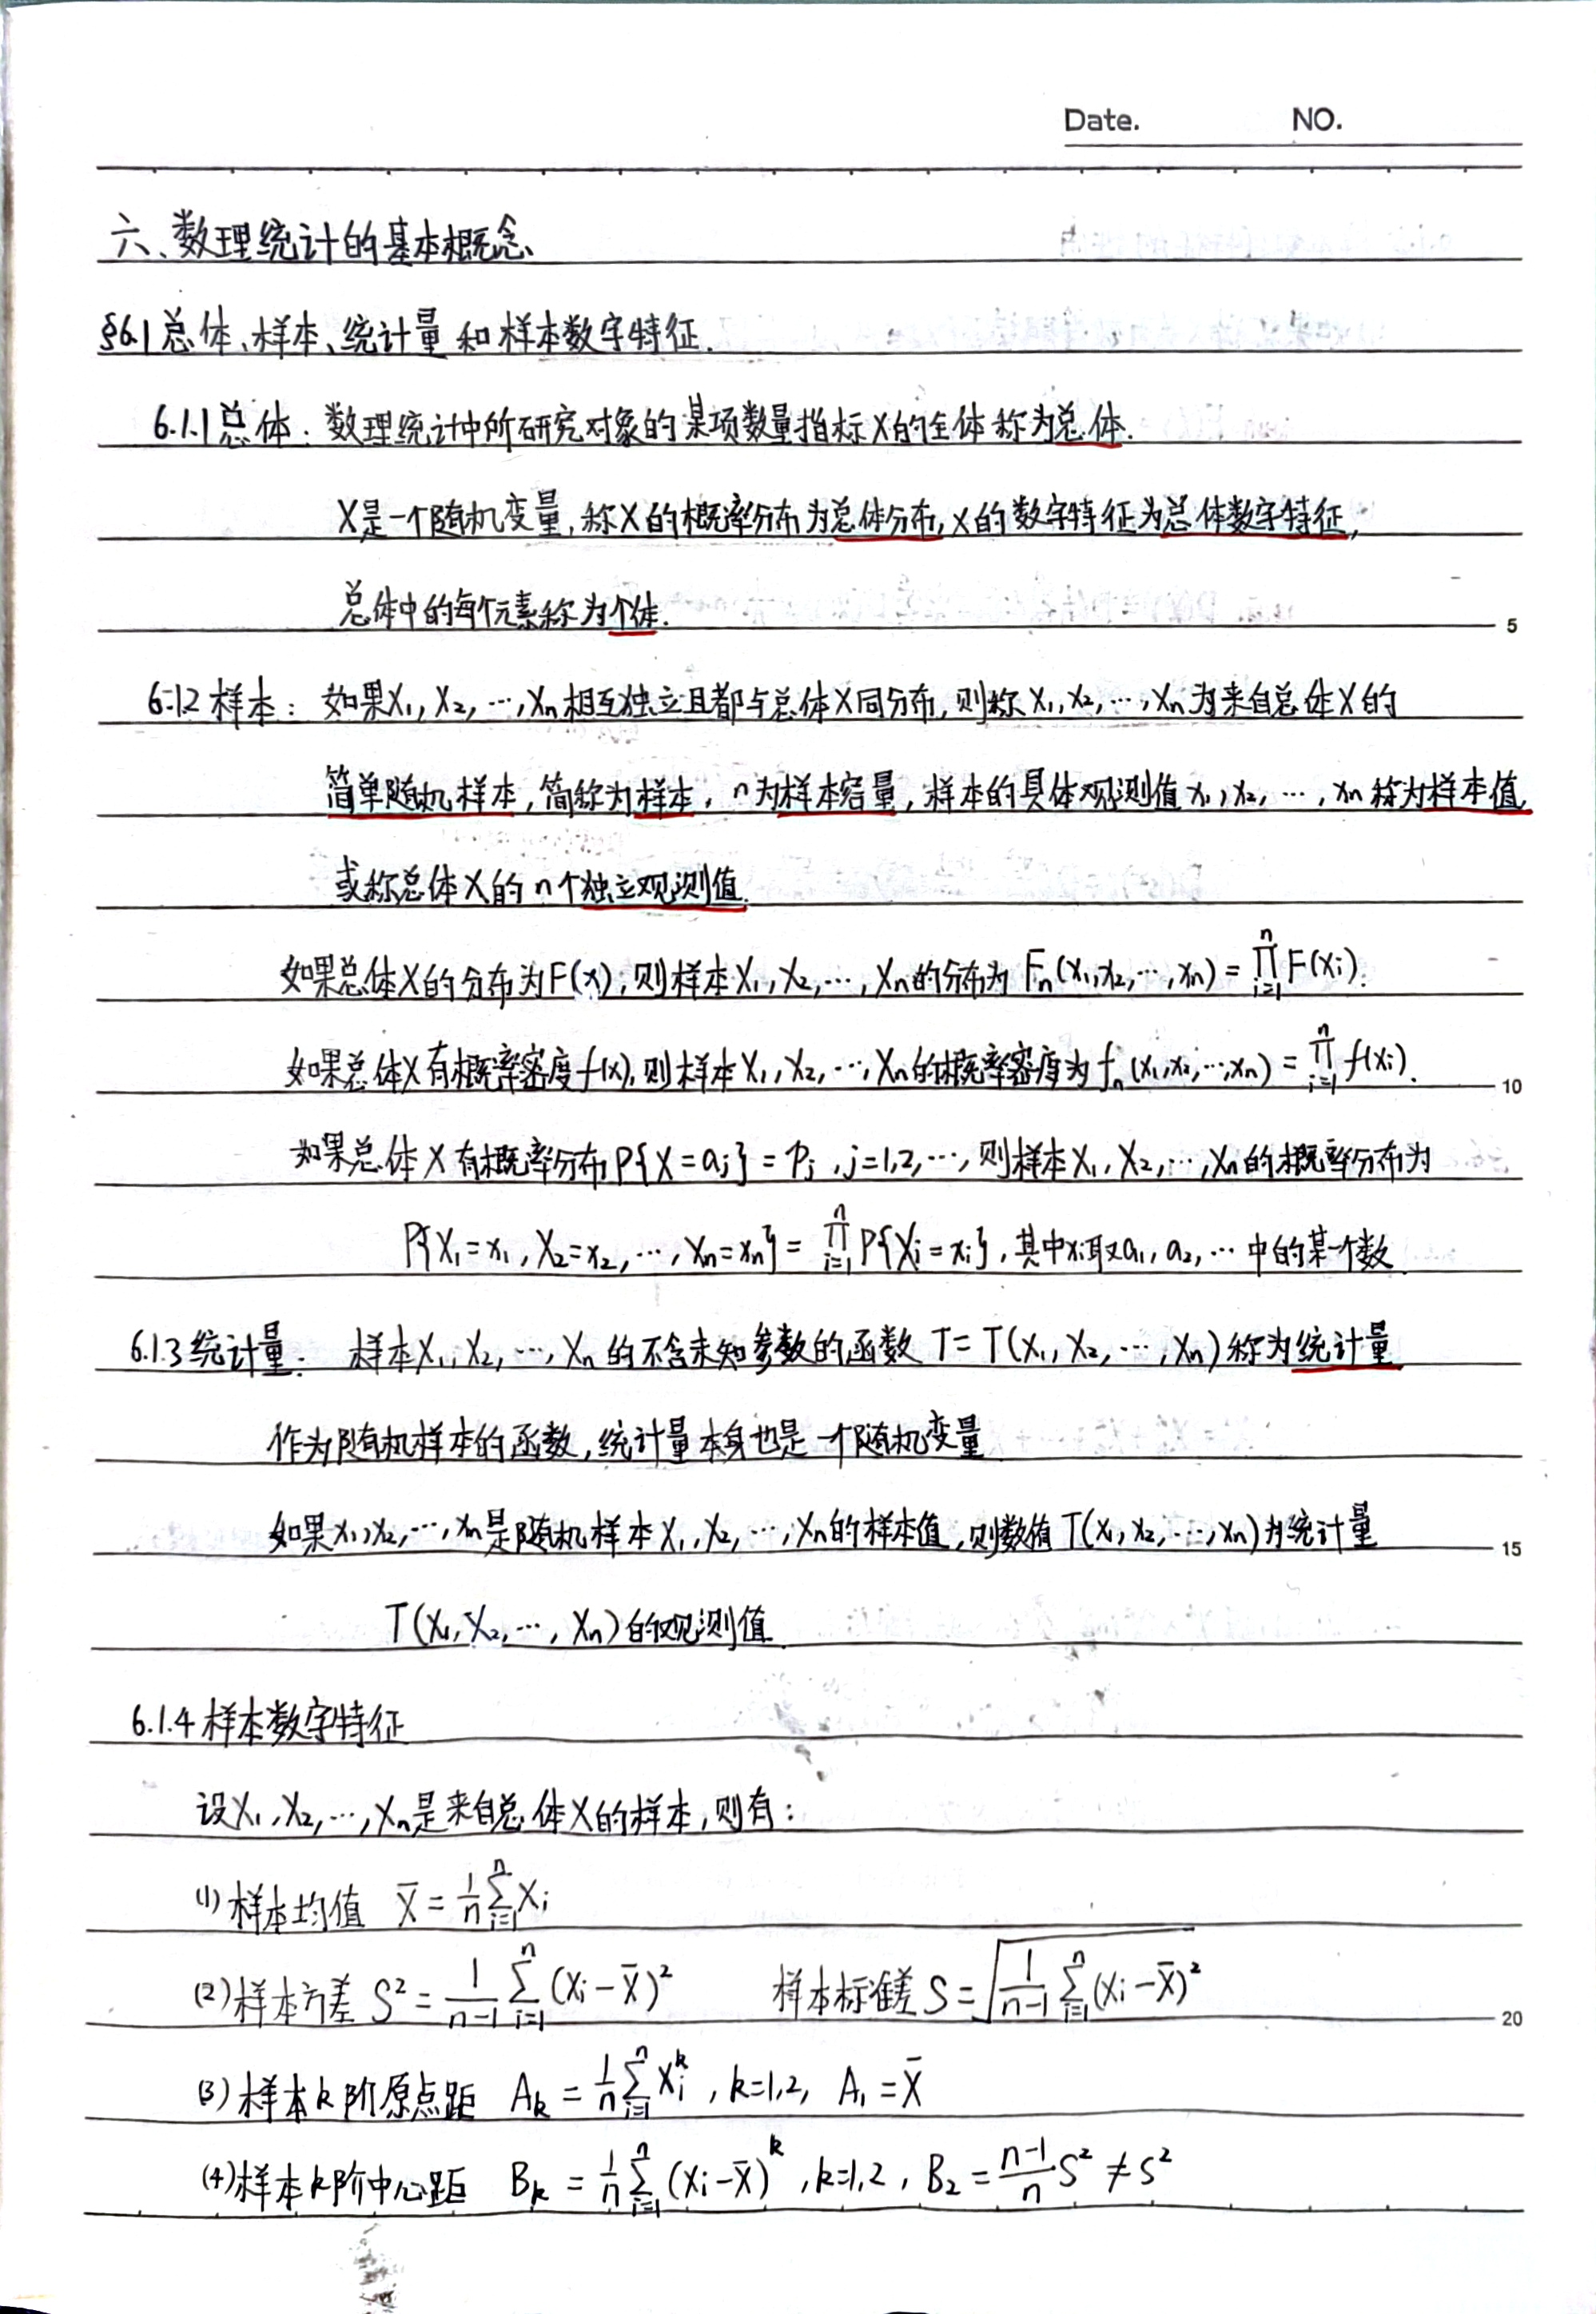 Date. NO.
六、数理统计的基本概念
§6.1 总体、样本、统计量 和 样本数字特征.
6.1.1 总体: 数理统计中所研究对象的某项数量指标X的全体称为总体.
X是一个随机变量,称X的概率分布为总体分布,X的数字特征为总体数字特征,
总体中的每个元素称为个体.
5
6.1.2 样本: 如果X₁, X₂, …, Xₙ相互独立且都与总体X同分布,则称X₁, X₂, …, Xₙ为来自总体X的
简单随机样本,简称为样本, n为样本容量,样本的具体观测值x₁, x₂, …, xₙ称为样本值,
或称总体X的n个独立观测值.
如果总体X的分布为F(x),则样本X₁, X₂, …, Xₙ的分布为 Fₙ(x₁, x₂, …, xₙ) = ∏ⁿᵢ₌₁ F(xᵢ).
如果总体X有概率密度f(x),则样本X₁, X₂, …, Xₙ的概率密度为 fₙ(x₁, x₂, …, xₙ) = ∏ⁿᵢ₌₁ f(xᵢ).
10
如果总体X有概率分布P{X=aⱼ}=pⱼ, j=1,2,…, 则样本X₁, X₂, …, Xₙ的概率分布为
P{X₁=x₁, X₂=x₂, …, Xₙ=xₙ} = ∏ⁿᵢ₌₁ P{Xᵢ=xᵢ}, 其中xᵢ取a₁, a₂, … 中的某一个数
6.1.3 统计量: 样本X₁, X₂, …, Xₙ的不含未知参数的函数 T=T(X₁, X₂, …, Xₙ)称为统计量
作为随机样本的函数,统计量本身也是一个随机变量
如果x₁, x₂, …, xₙ是随机样本X₁, X₂, …, Xₙ的样本值,则数值T(x₁, x₂, …, xₙ)为统计量
15
T(X₁, X₂, …, Xₙ)的观测值
6.1.4 样本数字特征
设X₁, X₂, …, Xₙ是来自总体X的样本,则有:
(1) 样本均值 X̄ = 1/n ∑ⁿᵢ₌₁ Xᵢ
(2) 样本方差 S² = 1/(n-1) ∑ⁿᵢ₌₁ (Xᵢ-X̄)² 样本标准差 S = √(1/(n-1) ∑ⁿᵢ₌₁ (Xᵢ-X̄)²)
20
(3) 样本k阶原点距 Aₖ = 1/n ∑ⁿᵢ₌₁ Xᵢᵏ, k=1,2, A₁=X̄
(4) 样本k阶中心距 Bₖ = 1/n ∑ⁿᵢ₌₁ (Xᵢ-X̄)ᵏ, k=1,2, B₂ = (n-1)/n S² ≠ S²